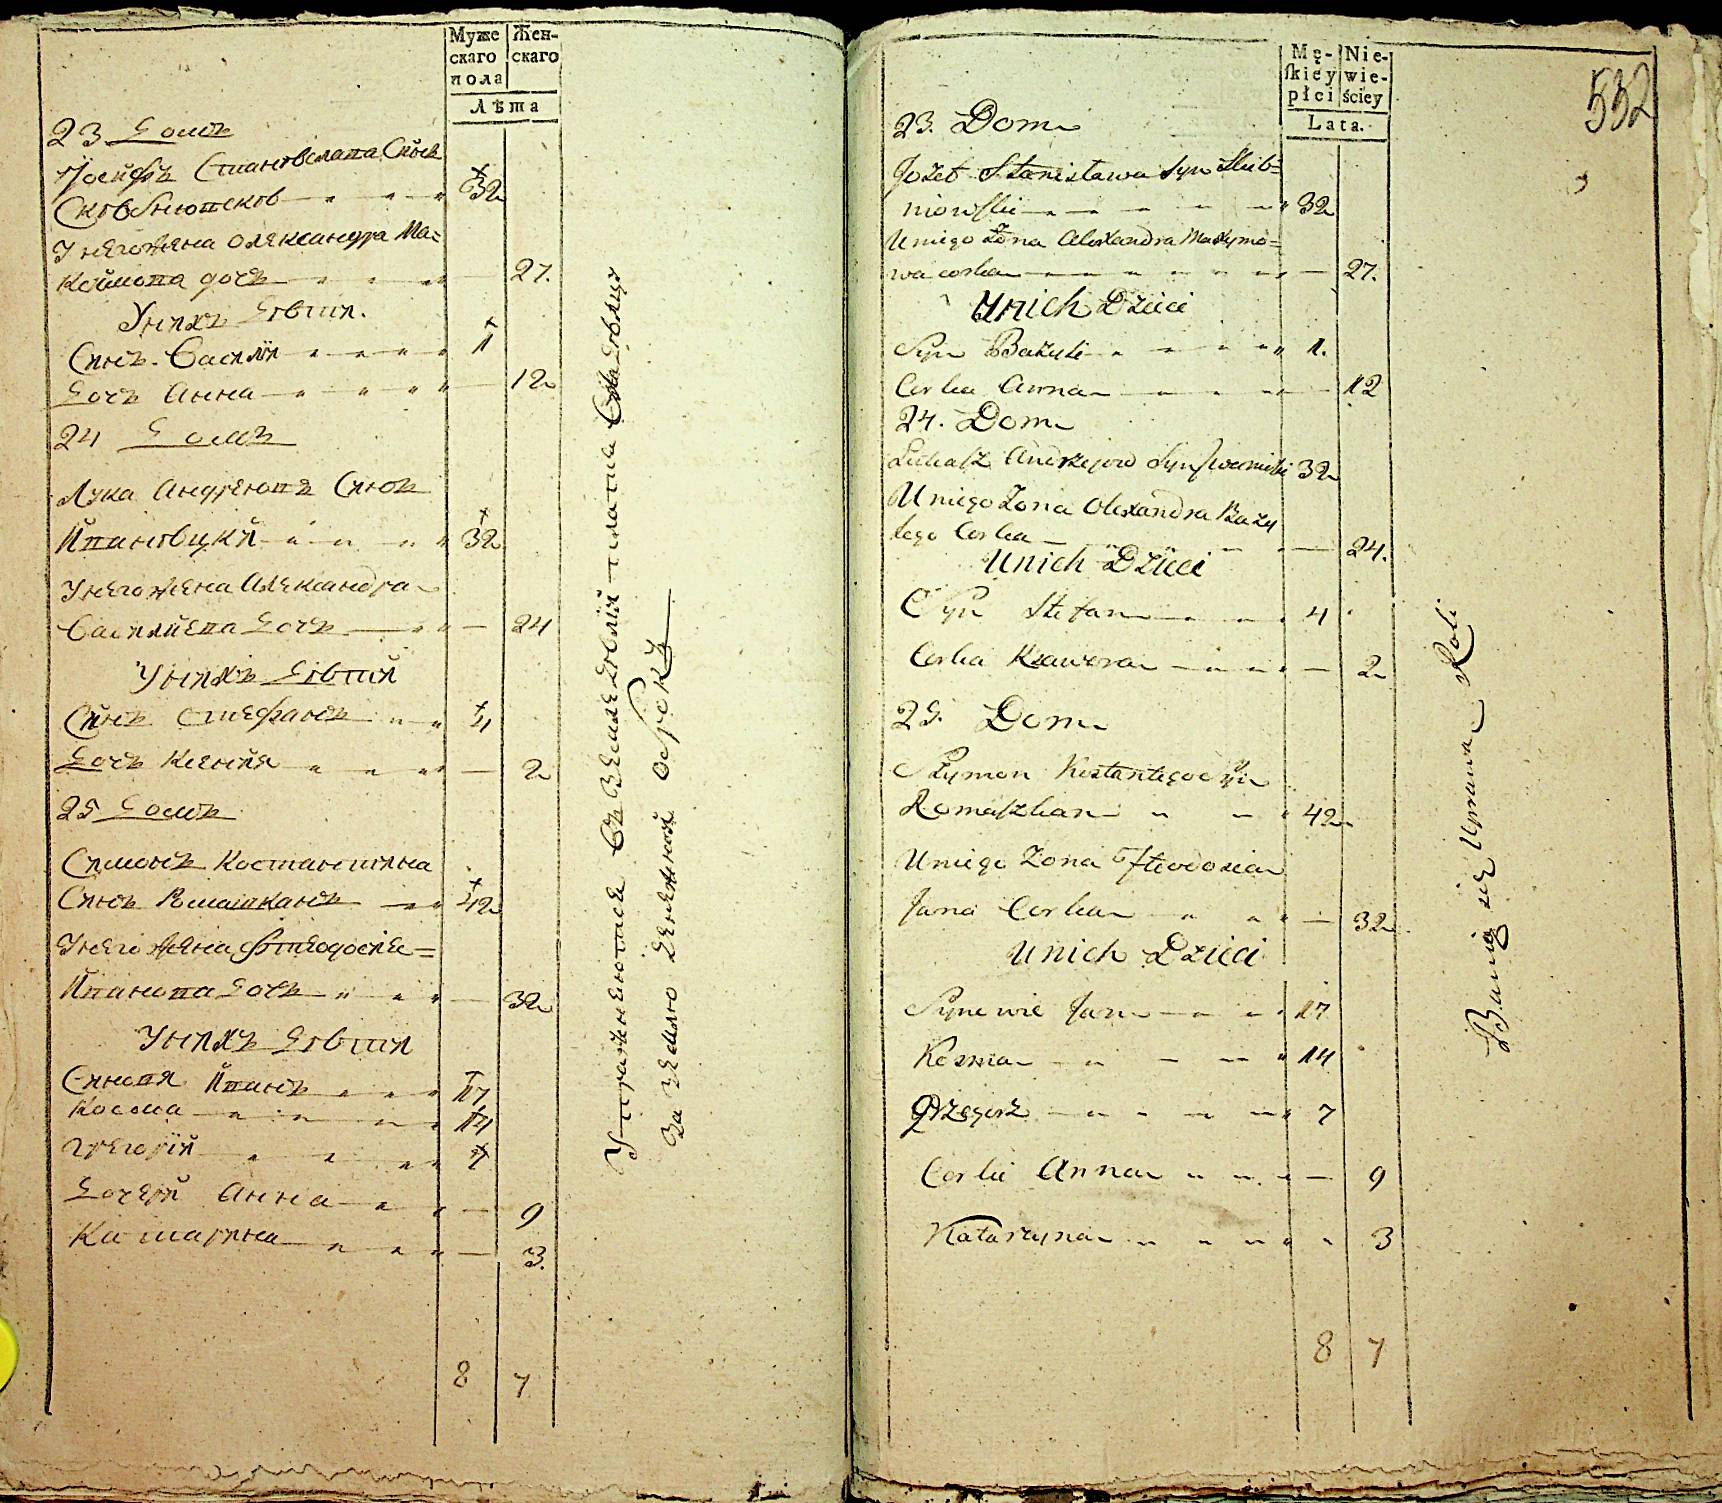 Муже
скаго
пола
Жен-
скаго
Лѣта
23 Домъ
Іосифъ Станиславовъ Сынъ
32
Унего жена Олександра Ма=
ксимова дочь 27.
Унихъ Дѣти.
Сынъ Василій 1
Дочь Анна 12
24 Домъ
Лука Андреювъ Сынъ
Ивановцкій 32
Унего жена Александра
Василіева Дочь 24
Унихъ Дѣти
Сынъ Стефанъ 4
Дочь Ксенія 2
25 Домъ
Симонъ Костантина
Сынъ Ромашканъ 42
Унего жена Фтеодосіе=
Иванова Дочь 32
Унихъ Дѣти
Сыновя Иванъ 17
Косма 14
Григорій 7
Дочери Анна 9
Катарина 3.
8 7
Упражнеются въ земледѣліи
За землю денежной оброкъ
532
Mę-
ſkiey
płci
Nie-
wie-
ściey
Lata.
23. Dom
Jozef Stanisława Syn Skib=
niowſki 32
U niego Zona Alexandra Maxymo=
wa corka 27.
U nich Dzieci
Syn Bazyli 1.
Corka Anna 12
24. Dom
Łukaſz Andrzejow Syn 32
U niego Zona Olexandra Bazy
lego Corka 24.
U nich Dzieci
Syn Stefan 4
Corka Xawera 2
25. Dom
Szymon Kostantego Syn
Romaſzkan 42
U niego Zona Fteodosia
Jana Corka 32
U nich Dzieci
Synowie Jan 17
Kozma 14
Grzegorz 7
Corki Anna 9
Katarzyna 3
8 7
Bawią się Uprawą Roli